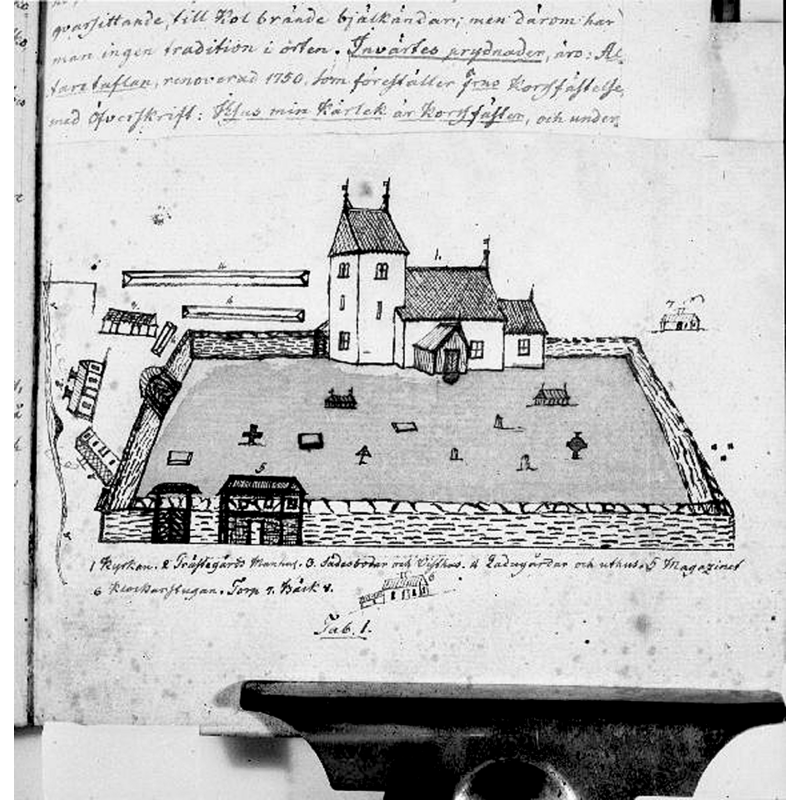 qvarsittande, till Kol brände bjälkändar; men därom har
man ingen tradition i orten. Invärtes prydnader, äro: Al-
taretaflan, renoverad 1750, som föreställer Korsfästelse,
med öfverskrift: Jesus min Kärlek är Korsfäster, och under
1.
4
4
7
5
6
1 Kyrkan. 2 Prästegårds Manhus. 3. Sädesbodar och Visthus. 4 Ladugårdar och uthus. 5 Magazinet
6 Klockarstugan. Torp 7. Bäck 8.
Tab. 1.